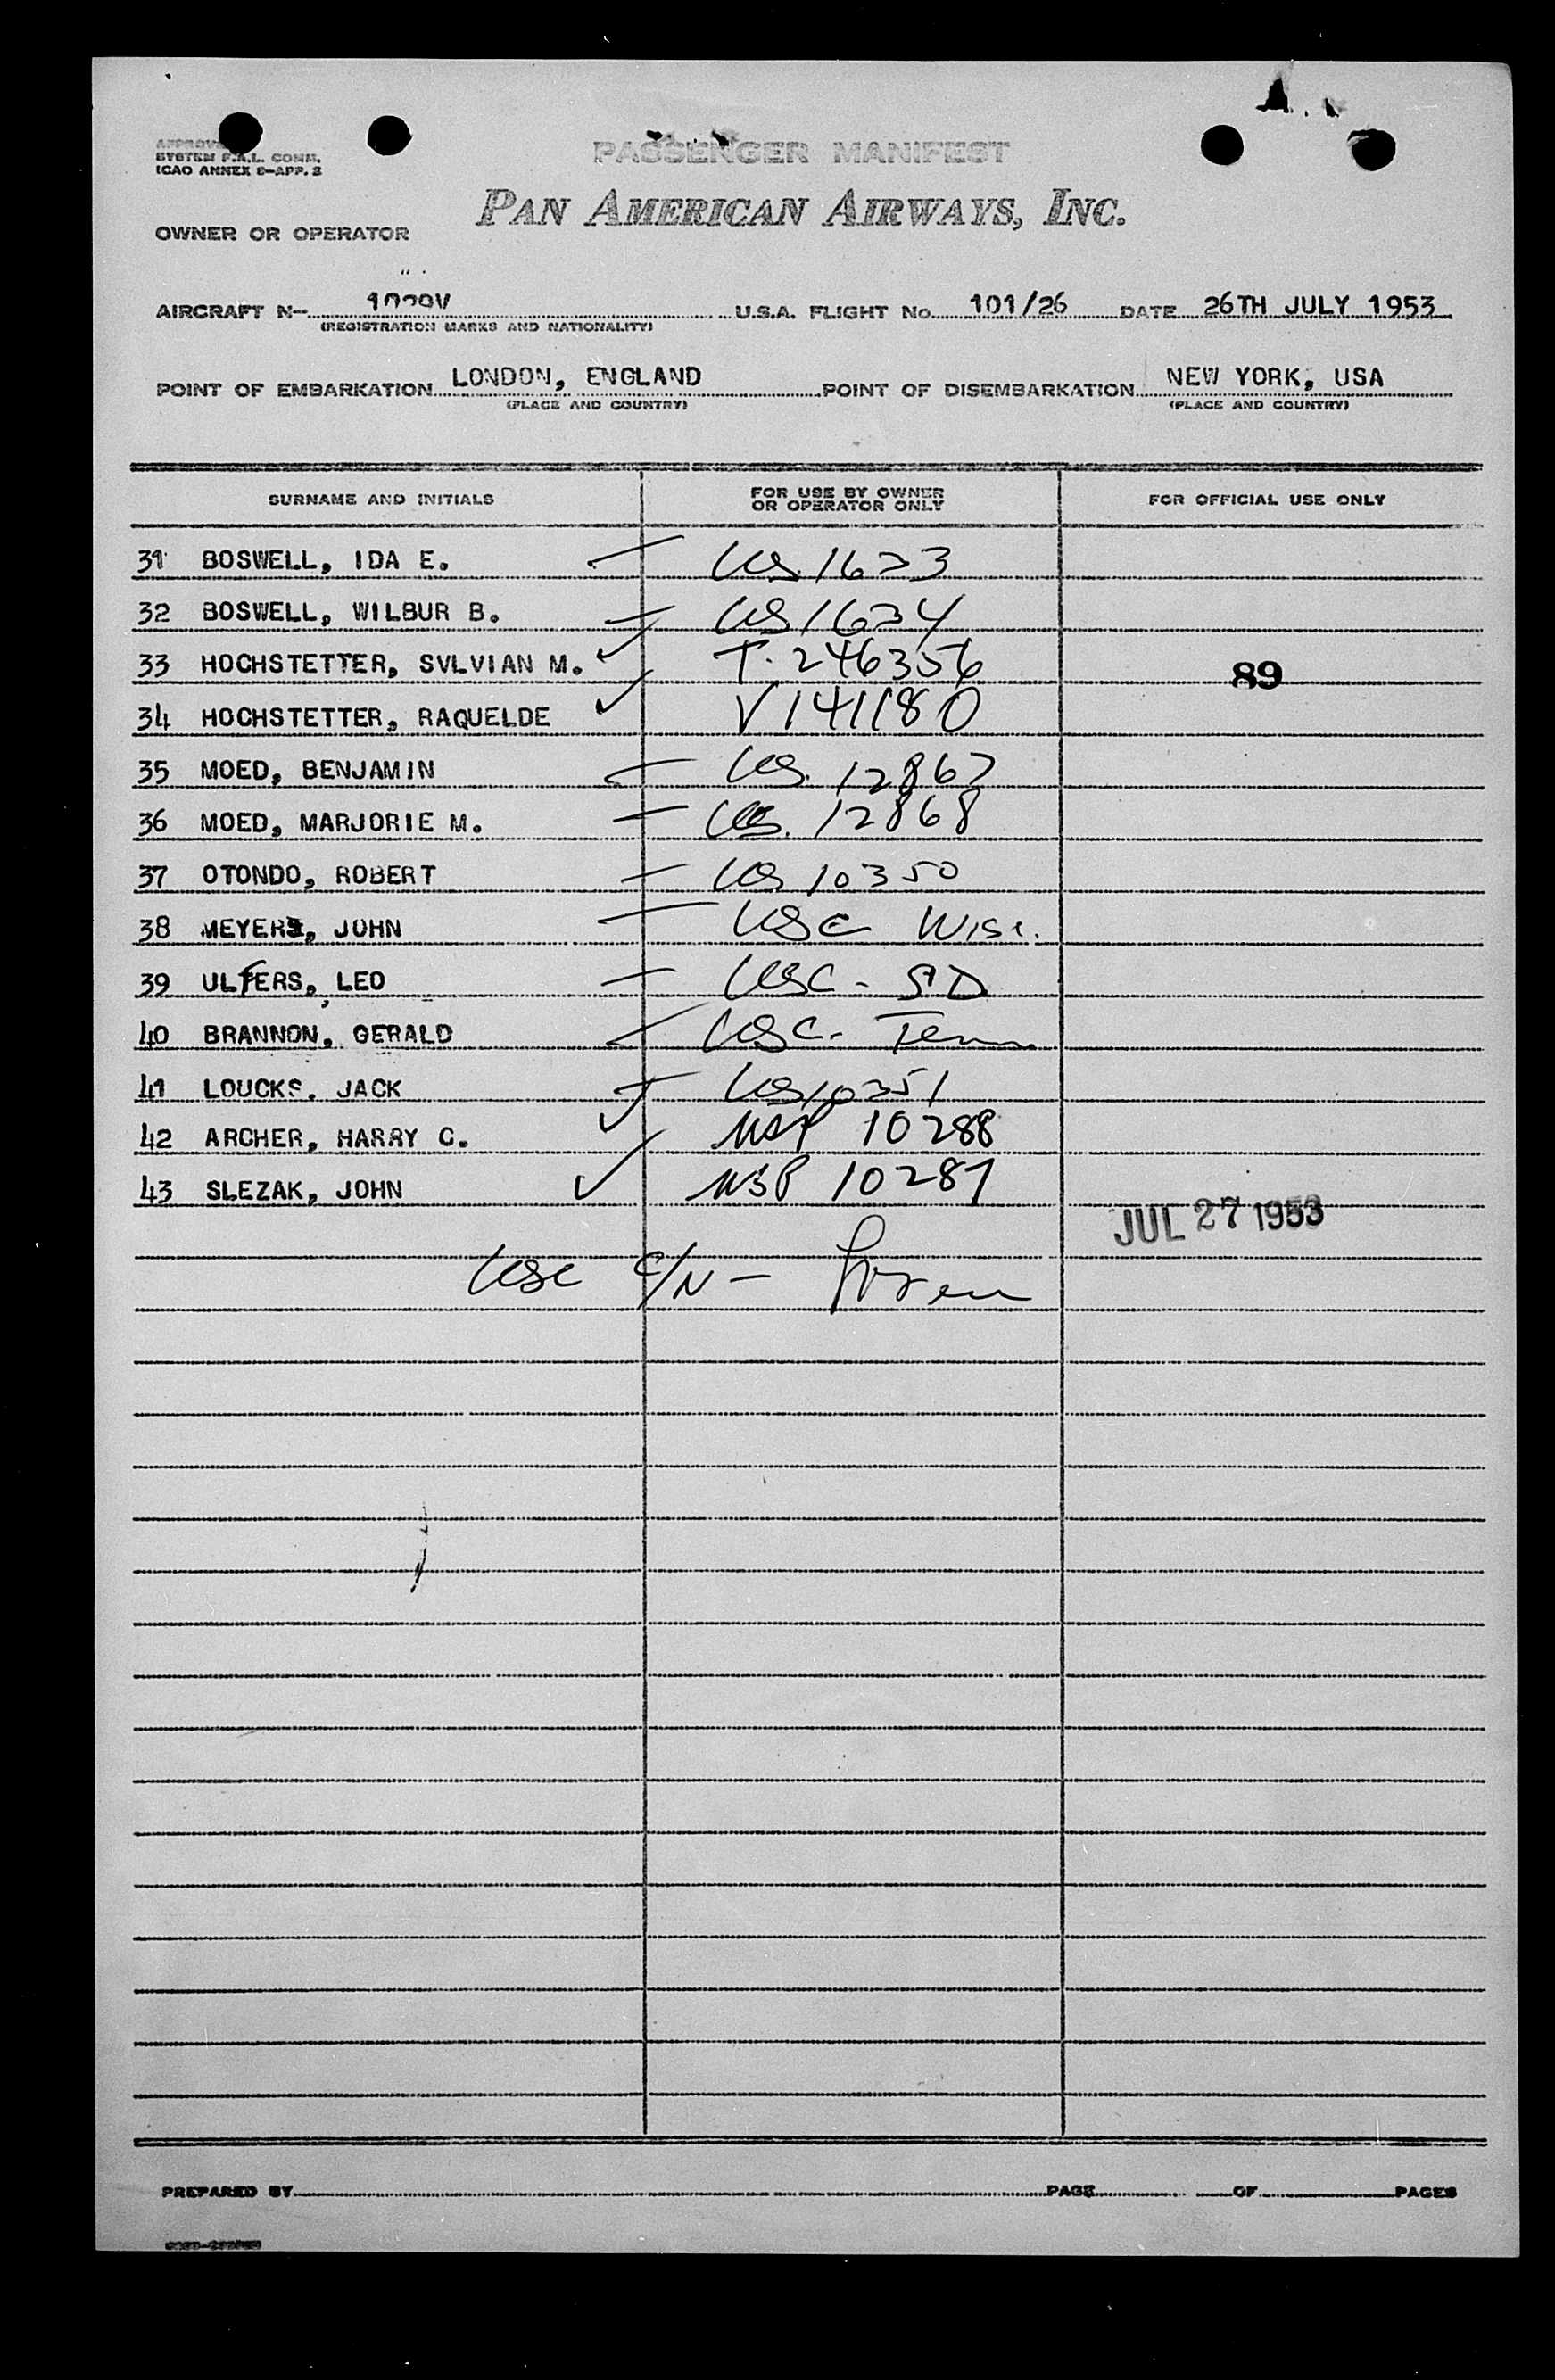 SYSTEM F.A.L. COMM.
ICAO ANNEX 9-APP. 3
PASSENGER MANIFEST
PAN AMERICAN AIRWAYS, INC.
OWNER OR OPERATOR
AIRCRAFT N- 1029V U.S.A. FLIGHT No. 101/26 DATE 26TH JULY 1953
(REGISTRATION MARKS AND NATIONALITY)
POINT OF EMBARKATION LONDON, ENGLAND POINT OF DISEMBARKATION NEW YORK, USA
(PLACE AND COUNTRY) (PLACE AND COUNTRY)
SURNAME AND INITIALS FOR USE BY OWNER OR OPERATOR ONLY FOR OFFICIAL USE ONLY
31 BOSWELL, IDA E. US 1633
32 BOSWELL, WILBUR B. US 1634
33 HOCHSTETTER, SVLVIAN M. T. 246356 89
34 HOCHSTETTER, RAQUELDE V 141180
35 MOED, BENJAMIN US. 12867
36 MOED, MARJORIE M. US. 12868
37 OTONDO, ROBERT US 10350
38 MEYERS, JOHN USC Wisc.
39 ULFERS, LEO USC - SD
40 BRANNON, GERALD USC - Tenn
41 LOUCKS, JACK US 10351
42 ARCHER, HARRY C. USSP 10288
43 SLEZAK, JOHN USSP 10287
JUL 27 1953
USC C/N -
PREPARED BY PAGE OF PAGES